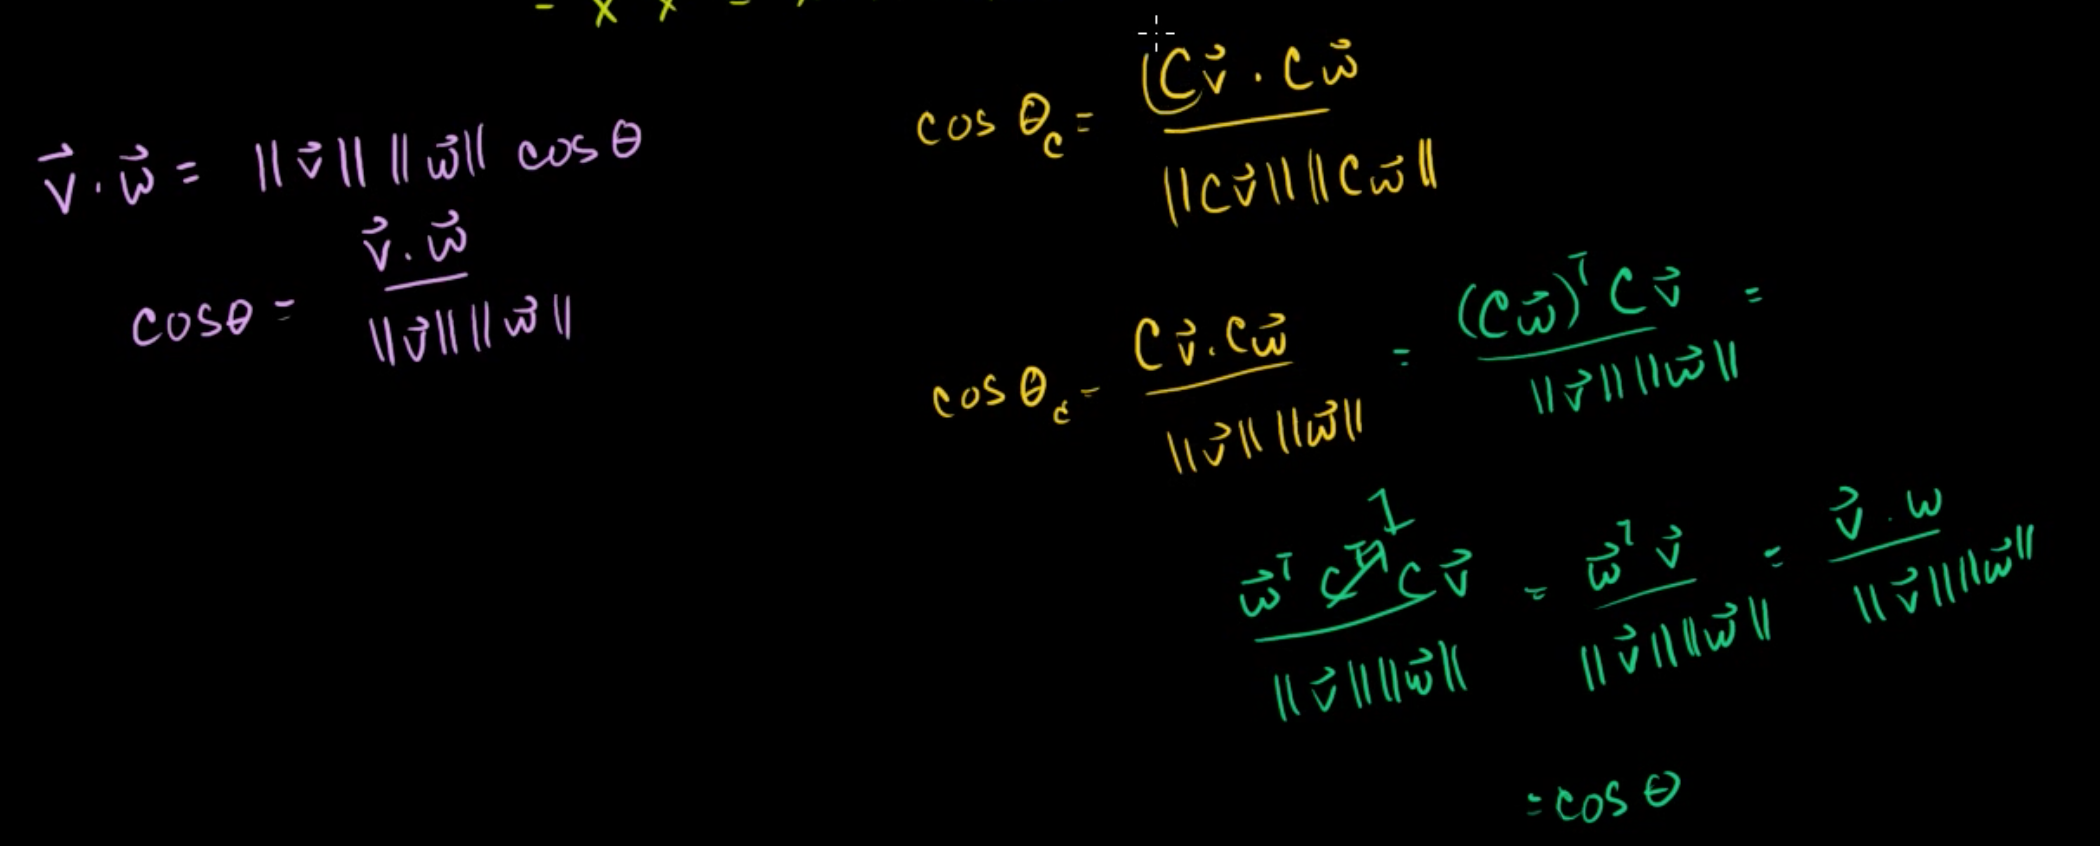 = x x =
v⃗ · w⃗ = ||v⃗|| ||w⃗|| cos θ
cos θ = v⃗ · w⃗ / ||v⃗|| ||w⃗||
cos θ_c = (Cv⃗ · Cw⃗ / ||Cv⃗|| ||Cw⃗||
cos θ_c = Cv⃗ · Cw⃗ / ||v⃗|| ||w⃗|| = (Cw⃗)ᵀ Cv⃗ / ||v⃗|| ||w⃗|| =
w⃗ᵀ Cᵀ Cv⃗ / ||v⃗|| ||w⃗|| = w⃗ᵀ v⃗ / ||v⃗|| ||w⃗|| = v⃗ · w / ||v⃗|| ||w⃗||
= cos θ